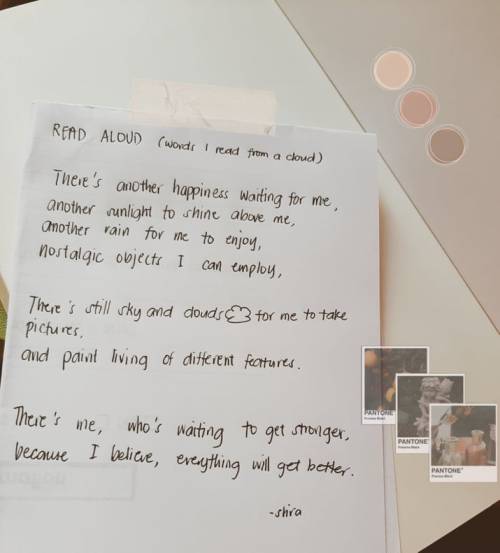 READ ALOUD (words I read from a cloud)
There's another happiness waiting for me,
another sunlight to shine above me,
another rain for me to enjoy,
nostalgic objects I can employ,
There's still sky and clouds for me to take
pictures,
and paint living of different features.
There's me, who's waiting to get stronger,
because I believe, everything will get better.
-shira
PANTONE®
PANTONE®
PANTONE®